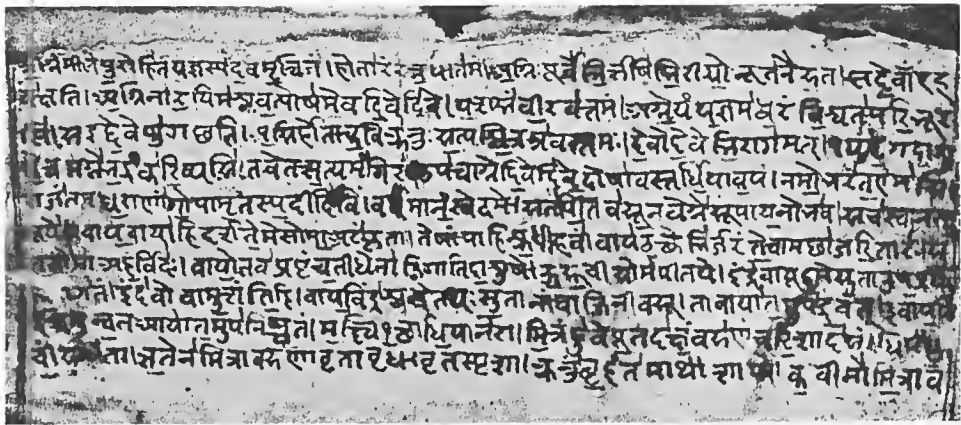 अग्निमीळे पुरोहितं यज्ञस्य देवमृत्विजं। होतारं रत्नधातमं। अग्निः पूर्वेभिर्ऋषिभिरीड्यो नूतनैरुत। स देवाँ एह
वक्षति। अग्निना रयिमश्नवत्पोषमेव दिवेदिवे। यशसं वीरवत्तमं। अग्ने यं यज्ञमध्वरं विश्वतः परिभूर
सि। स इद्देवेषु गछति। अग्निर्होता कविक्रतुः सत्यश्चित्रश्रवस्तमः। देवो देवेभिरागमत्। यदंग दाशु
त्वमग्ने भद्रं करिष्यसि। तवेत्तत्सत्यमंगिरः। उप त्वाग्ने दिवेदिवे दोषावस्तर्धिया वयं। नमो भरंत एमसि
राजंतमध्वराणां गोपामृतस्य दीदिविं। वर्धमानं स्वे दमे। स नः पितेव सूनवेग्ने सूपायनो भव। सचस्वा नः स्व
स्तये। वायवायाहि दर्शतेमे सोमा अरंकृताः। तेषां पाहि श्रुधी हवं। वाय उक्थेभिर्जरंते त्वामछा जरितारः।
तसोमा अहर्विदः। वायो तव प्रपृंचती धेना जिगाति दाशुषे। उरूची सोमपीतये। इंद्रवायू इमे सुता उप प्रयो
गतं। इंदवो वामुशंति हि। वायविंद्रश्च चेतथः सुतानां वाजिनीवसू। तावायातमुप द्रवत्। वायविं
सुन्वत आयातमुप निष्कृतं। मक्ष्वि१त्था धिया नरा। मित्रं हुवे पूतदक्षं वरुणं च रिशादसं। धियं
चीं साधंता। ऋतेन मित्रावरुणावृतावृधावृतस्पृशा। क्रतुं बृहंतमाशाथे। कवी नो मित्राव